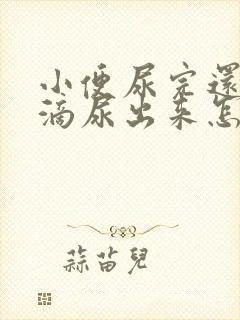 小便尿完還
滴尿出来怎
蒜苗兒